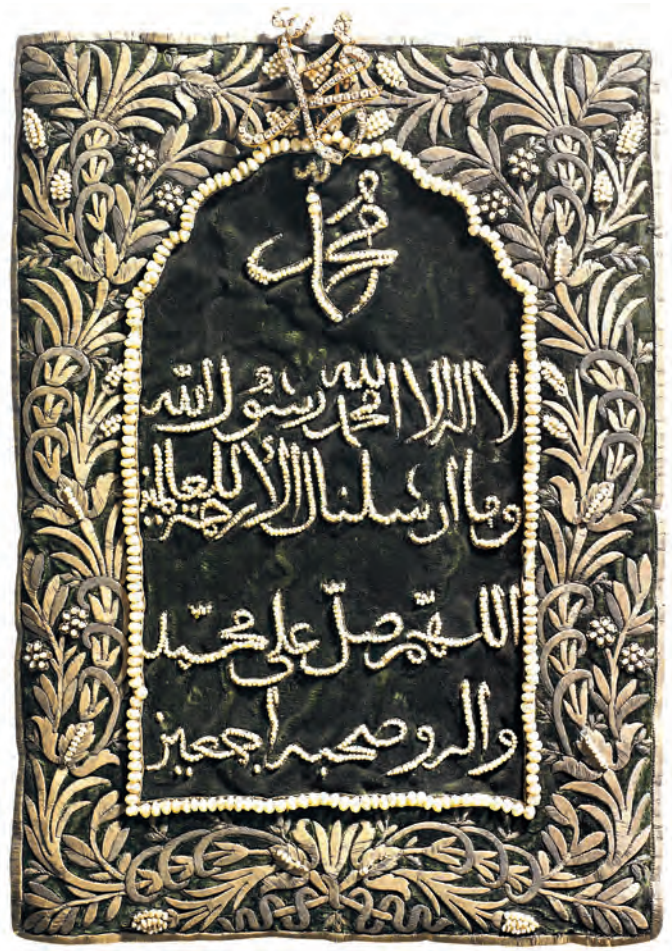 محمد
لا اله الا الله محمد رسول الله
وما ارسلناك الا رحمة للعالمين
اللهم صل على محمد
واله وصحبه اجمعين